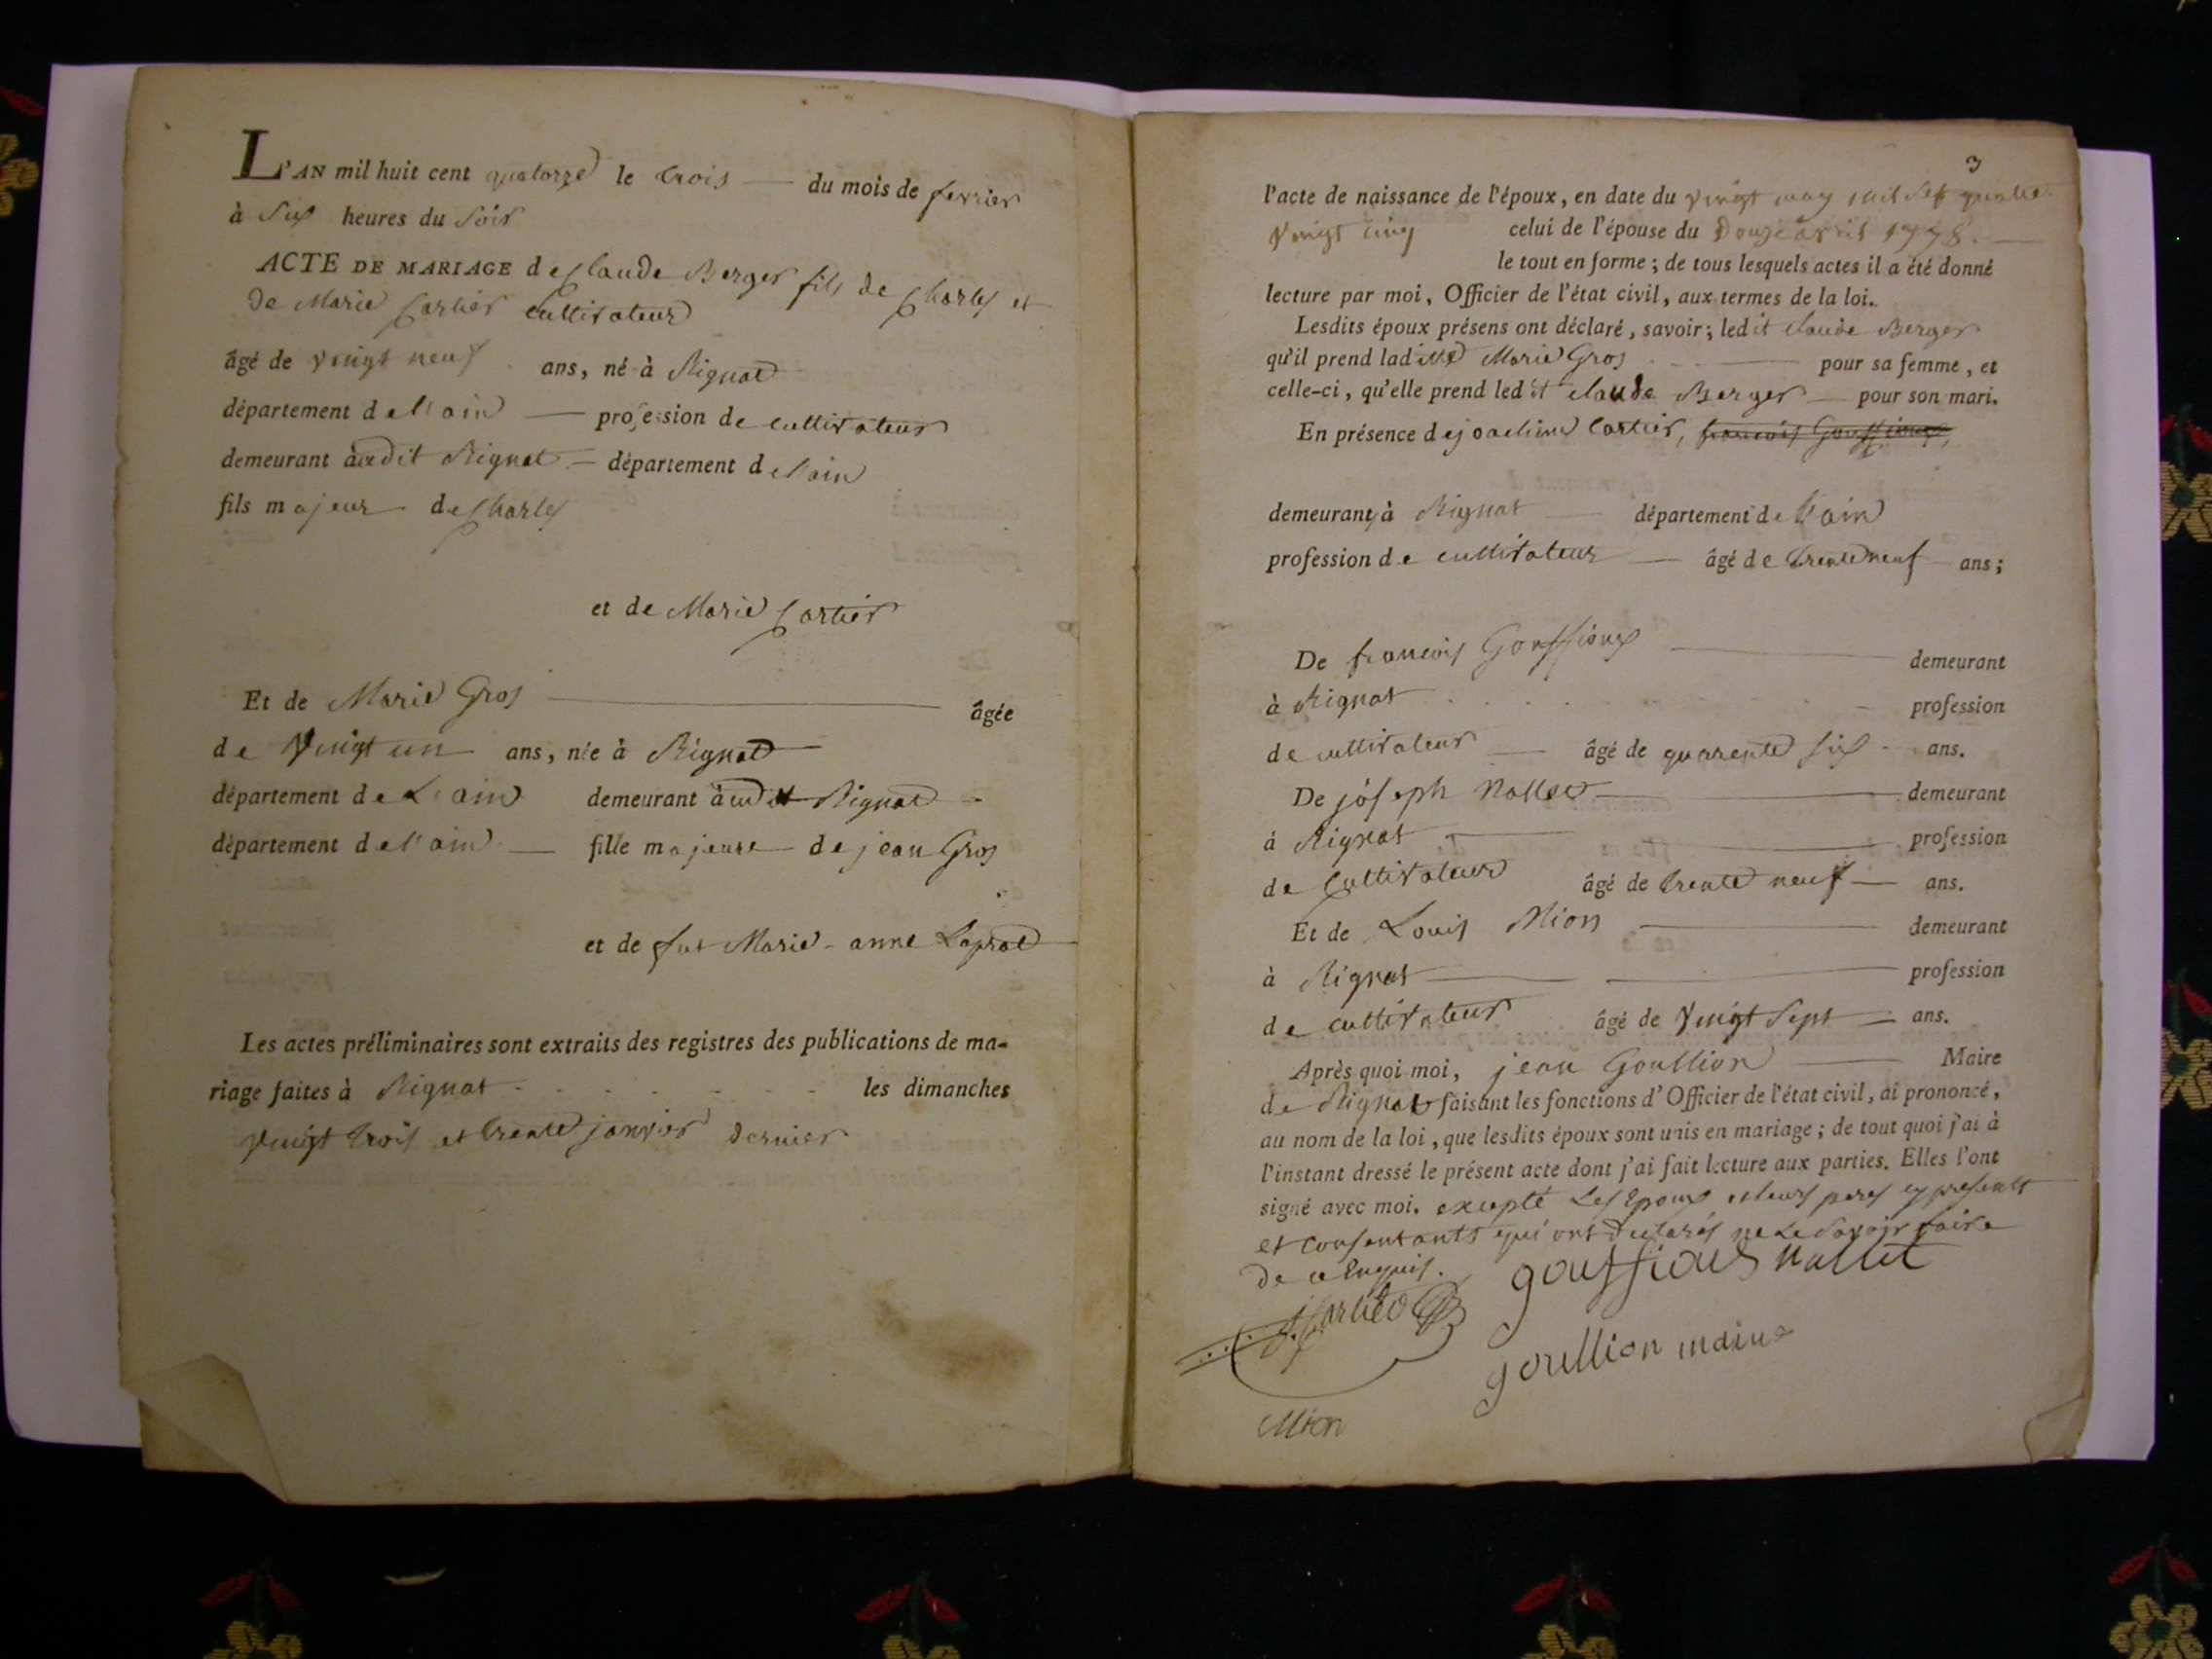 L'AN mil huit cent quatorze le trois du mois de fevrier
à Six heures du Soir
ACTE DE MARIAGE de Claude Berger fils de Charles et
de Marie Cartier Cultivateur
âgé de vingt neuf ans, né à Rignat
département de l'ain profession de cultivateur
demeurant audit Rignat département de l'ain
fils majeur de Charles
et de Marie Cartier
Et de Marie Gros âgée
de Vingt un ans, née à Rignat
département de L'ain demeurant audit Rignat
département de l'ain fille majeure de jean Gros
et de fut Marie-anne Laprat
Les actes préliminaires sont extraits des registres des publications de ma-
riage faites à Rignat les dimanches
vingt trois et trente janvier dernier
3
l'acte de naissance de l'époux, en date du vingt may mil sept quatre
vingt cinq celui de l'épouse du Douze avril
le tout en forme; de tous lesquels actes il a été donné
lecture par moi, Officier de l'état civil, aux termes de la loi.
Lesdits époux présens ont déclaré, savoir; ledit claude Berger
qu'il prend ladite Marie Gros pour sa femme, et
celle-ci, qu'elle prend ledit claude Berger pour son mari.
En présence de joachim Cartier, francois Gouffioux,
demeurant à Rignat département de l'ain
profession de cultivateur âgé de trente neuf ans;
De francois Gouffioux demeurant
à Rignat profession
de cultivateur âgé de quarente six ans.
De joseph Nallet demeurant
à Rignat profession
de Cultivateur âgé de trente neuf ans.
Et de Louis Mion demeurant
à Rignat profession
de cultivateur âgé de vingt Sept ans.
Après quoi moi, jean Goullion Maire
de Rignat faisant les fonctions d'Officier de l'état civil, ai prononcé,
au nom de la loi, que lesdits époux sont unis en mariage; de tout quoi j'ai à
l'instant dressé le présent acte dont j'ai fait lecture aux parties. Elles l'ont
signé avec moi. excepté Les Epoux et leurs peres cy presents
et consentants qui ont declarés ne Le Savoir faire
de ce Enquis. gouffioux nallet
goullion maire
Mion